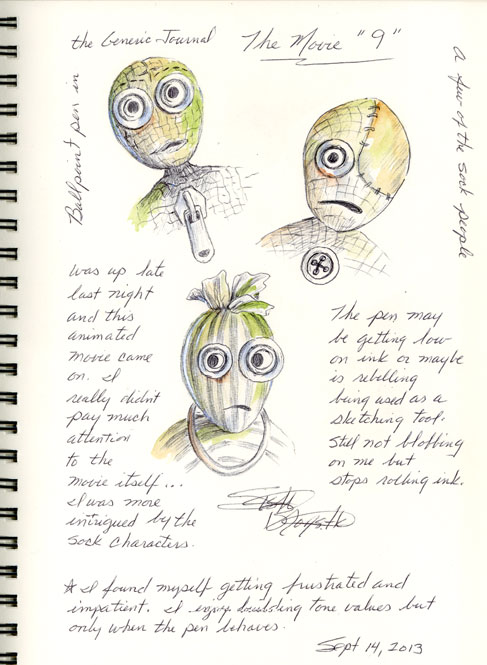 Ballpoint pen in
the Generic Journal
The Movie "9"
A few of the sock people
was up late
last night
and this
animated
movie came
on. I
really didn't
pay much
attention
to the
movie itself...
I was more
intrigued by the
sock characters.
The pen may
be getting low
on ink or maybe
is rebelling
being used as a
sketching tool.
Still not blobbing
on me but
stops rolling ink.
* I found myself getting frustrated and
impatient. I enjoy building tone values but
only when the pen behaves.
Sept 14, 2013